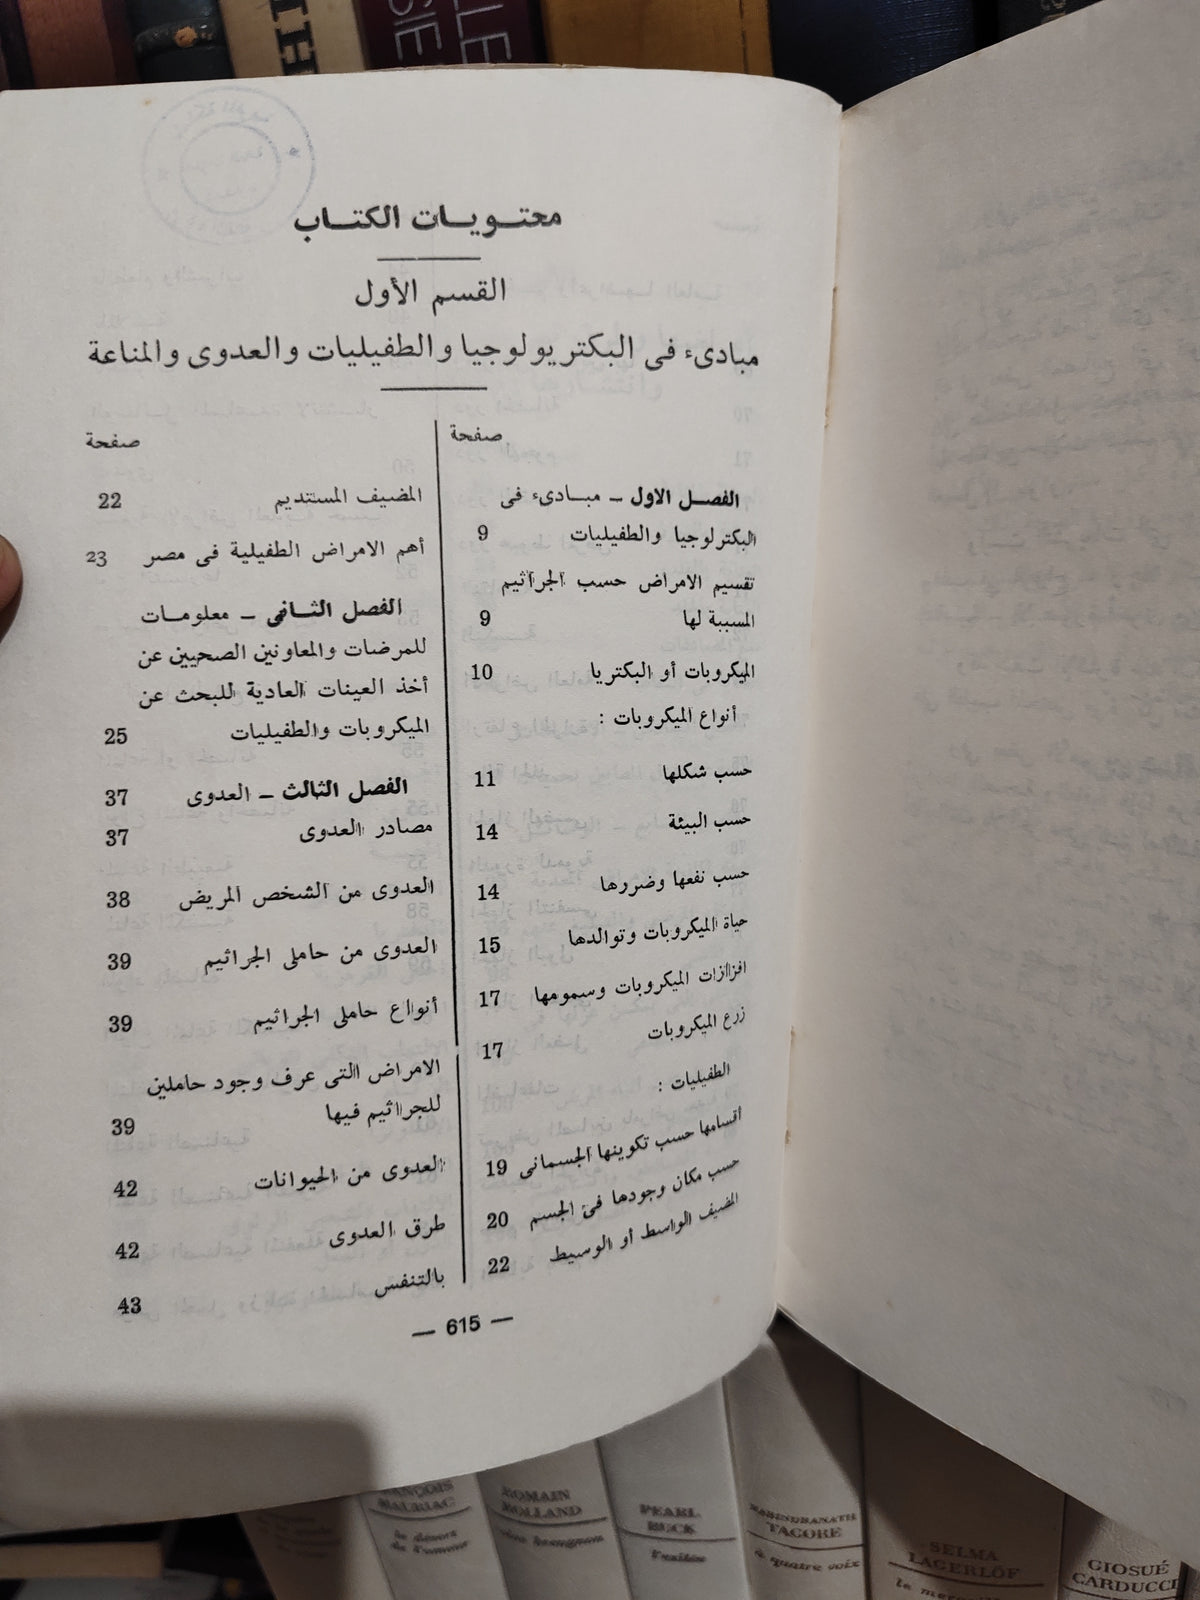 محتويات الكتاب
القسم الأول
مبادىء فى البكتريولوجيا والطفيليات والعدوى والمناعة
صفحة
الفصل الاول — مبادىء فى
البكترلوجيا والطفيليات 9
تقسيم الامراض حسب الجراثيم
المسببة لها 9
الميكروبات أو البكتريا 10
أنواع الميكروبات :
حسب شكلها 11
حسب البيئة 14
حسب نفعها وضررها 14
حياة الميكروبات وتوالدها 15
افزازات الميكروبات وسمومها 17
زرع الميكروبات 17
الطفيليات :
أقسامها حسب تكوينها الجسمانى 19
حسب مكان وجودها فى الجسم 20
المضيف الواسط أو الوسيط 22
صفحة
المضيف المستديم 22
أهم الامراض الطفيلية فى مصر 23
الفصل الثانى — معلومات
للمرضات والمعاونين الصحيين عن
أخذ العينات العادية للبحث عن
الميكروبات والطفيليات 25
الفصل الثالث — العدوى 37
مصادر العدوى 37
العدوى من الشخص المريض 38
العدوى من حاملى الجراثيم 39
أنواع حاملى الجراثيم 39
الامراض التى عرف وجود حاملين
للجراثيم فيها 39
العدوى من الحيوانات 42
طرق العدوى 42
بالتنفس 43
— 615 —
FRANÇOIS
MAURIAC
le désert
de l'amour
ROMAIN
ROLLAND
PEARL
BUCK
l'exilée
RABINDRANATH
TAGORE
à quatre voix
SELMA
LAGERLÖF
GIOSUÉ
CARDUCCI